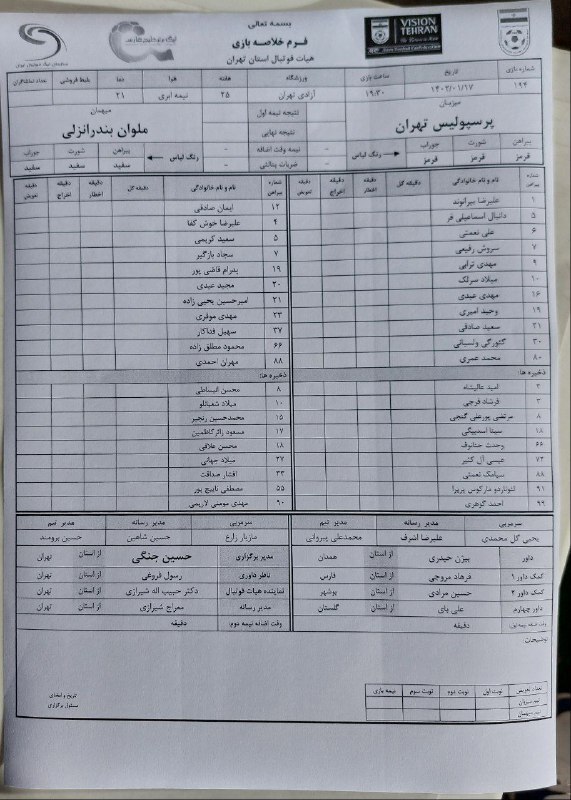 بسمه تعالی
فرم خلاصه بازی
هیات فوتبال استان تهران
VISION TEHRAN
شماره بازی تاریخ ساعت بازی ورزشگاه هفته هوا دما بلیط فروشی تعداد تماشاگران
۱۹۴ ۱۴۰۲/۰۱/۱۷ ۱۹:۳۰ آزادی تهران ۲۵ نیمه ابری ۲۱
میزبان نتیجه نیمه اول میهمان
پرسپولیس تهران نتیجه نهایی ملوان بندرانزلی
پیراهن شورت جوراب رنگ لباس نیمه وقت اضافه - - رنگ لباس پیراهن شورت جوراب
قرمز قرمز قرمز ضربات پنالتی - - سفید سفید سفید
شماره پیراهن نام و نام خانوادگی دقیقه گل دقیقه اخطار دقیقه اخراج دقیقه تعویض شماره پیراهن نام و نام خانوادگی دقیقه گل دقیقه اخطار دقیقه اخراج دقیقه تعویض
۱ علیرضا بیرانوند ۱۲ ایمان صادقی
۵ دانیال اسماعیلی فر ۴ علیرضا خوش کفا
۶ علی نعمتی ۵ سعید کریمی
۷ سروش رفیعی ۷ سجاد بازگیر
۹ مهدی ترابی ۱۹ پدرام قاضی پور
۱۰ میلاد سرلک ۲۰ مجید عیدی
۱۶ مهدی عبدی ۲۱ امیرحسین یحیی زاده
۱۹ وحید امیری ۲۳ مهدی موفری
۲۱ سعید صادقی ۲۷ سهیل فداکار
۳۰ گئورگی ولسیانی ۶۶ محمود مطلق زاده
۸۰ محمد عمری ۸۸ مهران احمدی
ذخیره ها: ذخیره ها:
امید عالیشاه ۸ محسن انبساطی
۳ فرشاد فرجی ۱۰ میلاد شعبانلو
۸ مرتضی پورعلی گنجی ۱۵ محمدحسین رنجبر
۱۸ سینا اسدبیگی ۱۷ مسعود زائرکاظمین
۶۶ وحدت حنانوف ۱۸ محسن علاقی
۷۲ عیسی آل کثیر ۲۷ میلاد جهانی
۸۸ سیامک نعمتی ۳۳ افشار صداقت
۹۱ لئوناردو مارکوس پریرا ۵۵ مصطفی ناییج پور
۹۹ احمد گوهری ۹۰ مهدی مومنی لاریمی
سرمربی مدیر رسانه مدیر تیم سرمربی مدیر رسانه مدیر تیم
یحیی گل محمدی علیرضا اشرف محمدعلی پیروانی مازیار زارع حسین شاهین حسین برومند
داور بیژن حیدری از استان همدان مدیر برگزاری حسین جنگی از استان تهران
کمک داور ۱ فرهاد مروجی از استان فارس ناظر داوری رسول فروغی از استان تهران
کمک داور ۲ حسین مرادی از استان بوشهر نماینده هیات فوتبال دکتر حبیب اله شیرازی از استان تهران
داور چهارم علی یای از استان گلستان مدیر رسانه معراج شیرازی از استان تهران
وقت اضافه نیمه اول: دقیقه وقت اضافه نیمه دوم: دقیقه
توضیحات:
تعداد تعویض نوبت اول نوبت دوم نوبت سوم نیمه بازی
تیم میزبان
تیم میهمان
تاریخ و امضای
مسئول برگزاری